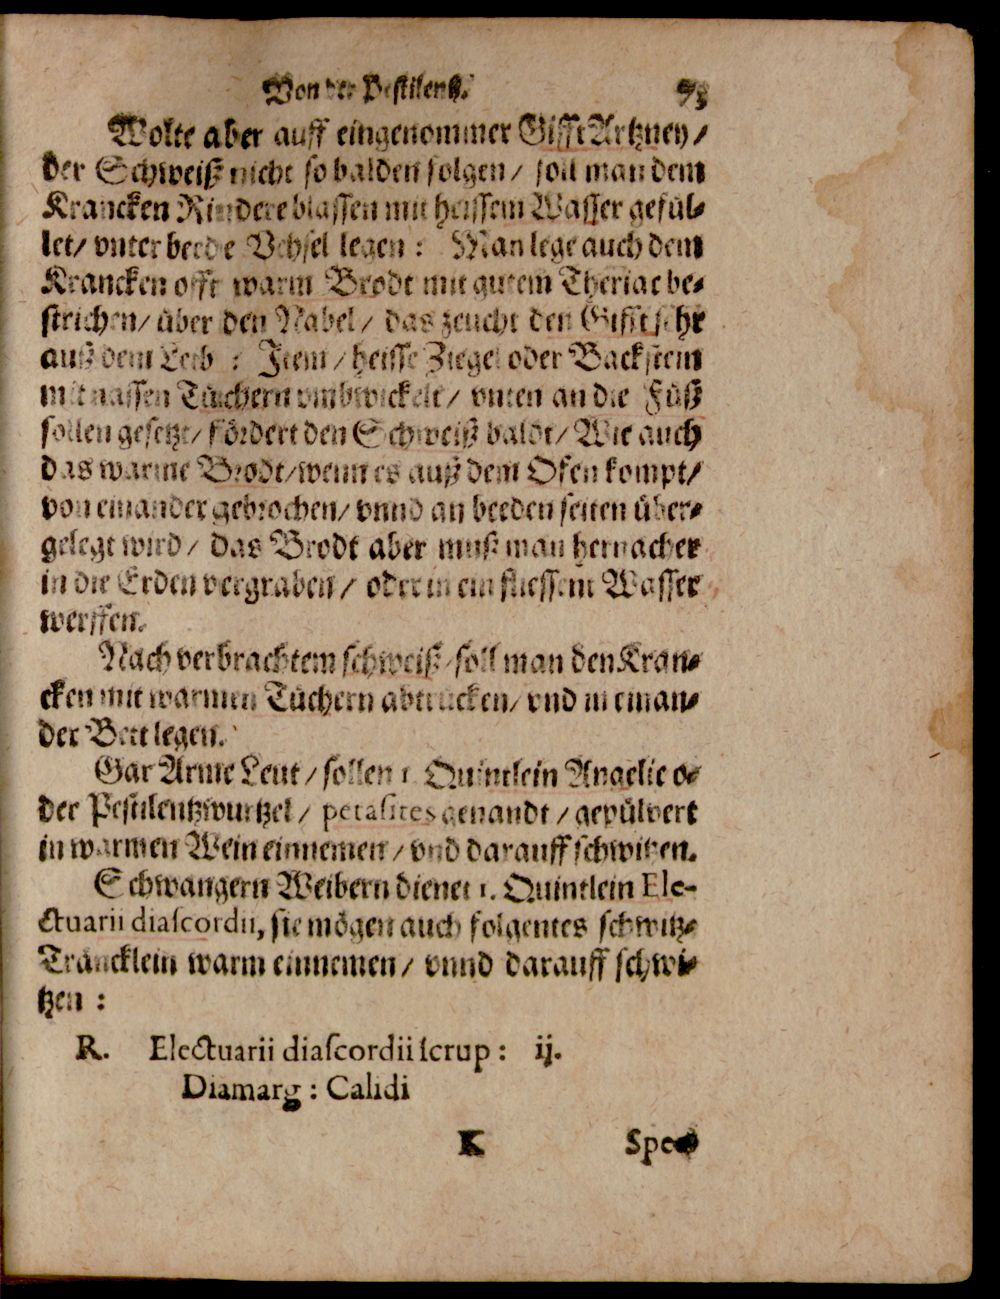 Von der Pestilentz. 73
Wolte aber auff eingenommer Gifft Artzney/
der Schweiß nicht so balden folgen/ soll man dem
Krancken Rindere blassen mit heissem Wasser gefül-
let/ vnter beede Vchsel legen : Man lege auch dem
Krancken offt warm Brodt mit gutem Theriac be-
strichen/ über den Nabel/ das zeucht den Gifft sehr
auß dem Leib : Item/ heisse Ziegel oder Backstein
mit nassen Tüchern vmbwickelt/ vnten an die Füß
sollen gesetzt/ fördert den Schweiß baldt/ Wie auch
das warme Brodt/ wenn es auß dem Ofen kompt/
von einander gebrochen/ vnnd an beeden seiten über-
gelegt wird/ das Brodt aber muß man hernacher
in die Erden vergraben/ oder in ein fliessem Wasser
werffen.
Nach verbrachtem schweiß/ soll man den Kran-
cken mit warmen Tüchern abtrucken/ vnd in einan-
der Bett legen.
Gar Arme Leut/ sollen 1. Quintlein Angelic o-
der Pestilentzwurtzel/ petasites genandt/ gepülvert
in warmen Wein einnemen/ vnd darauff schwitzen.
Schwangern Weibern dienet 1. Quintlein Ele-
ctuarii diascordii, sie mögen auch folgentes schwitz-
Träncklein warm einnemen/ vnnd darauff schwi-
tzen :
R. Electuarii diascordii scrup : ij.
Diamarg : Calidi
K Spec-